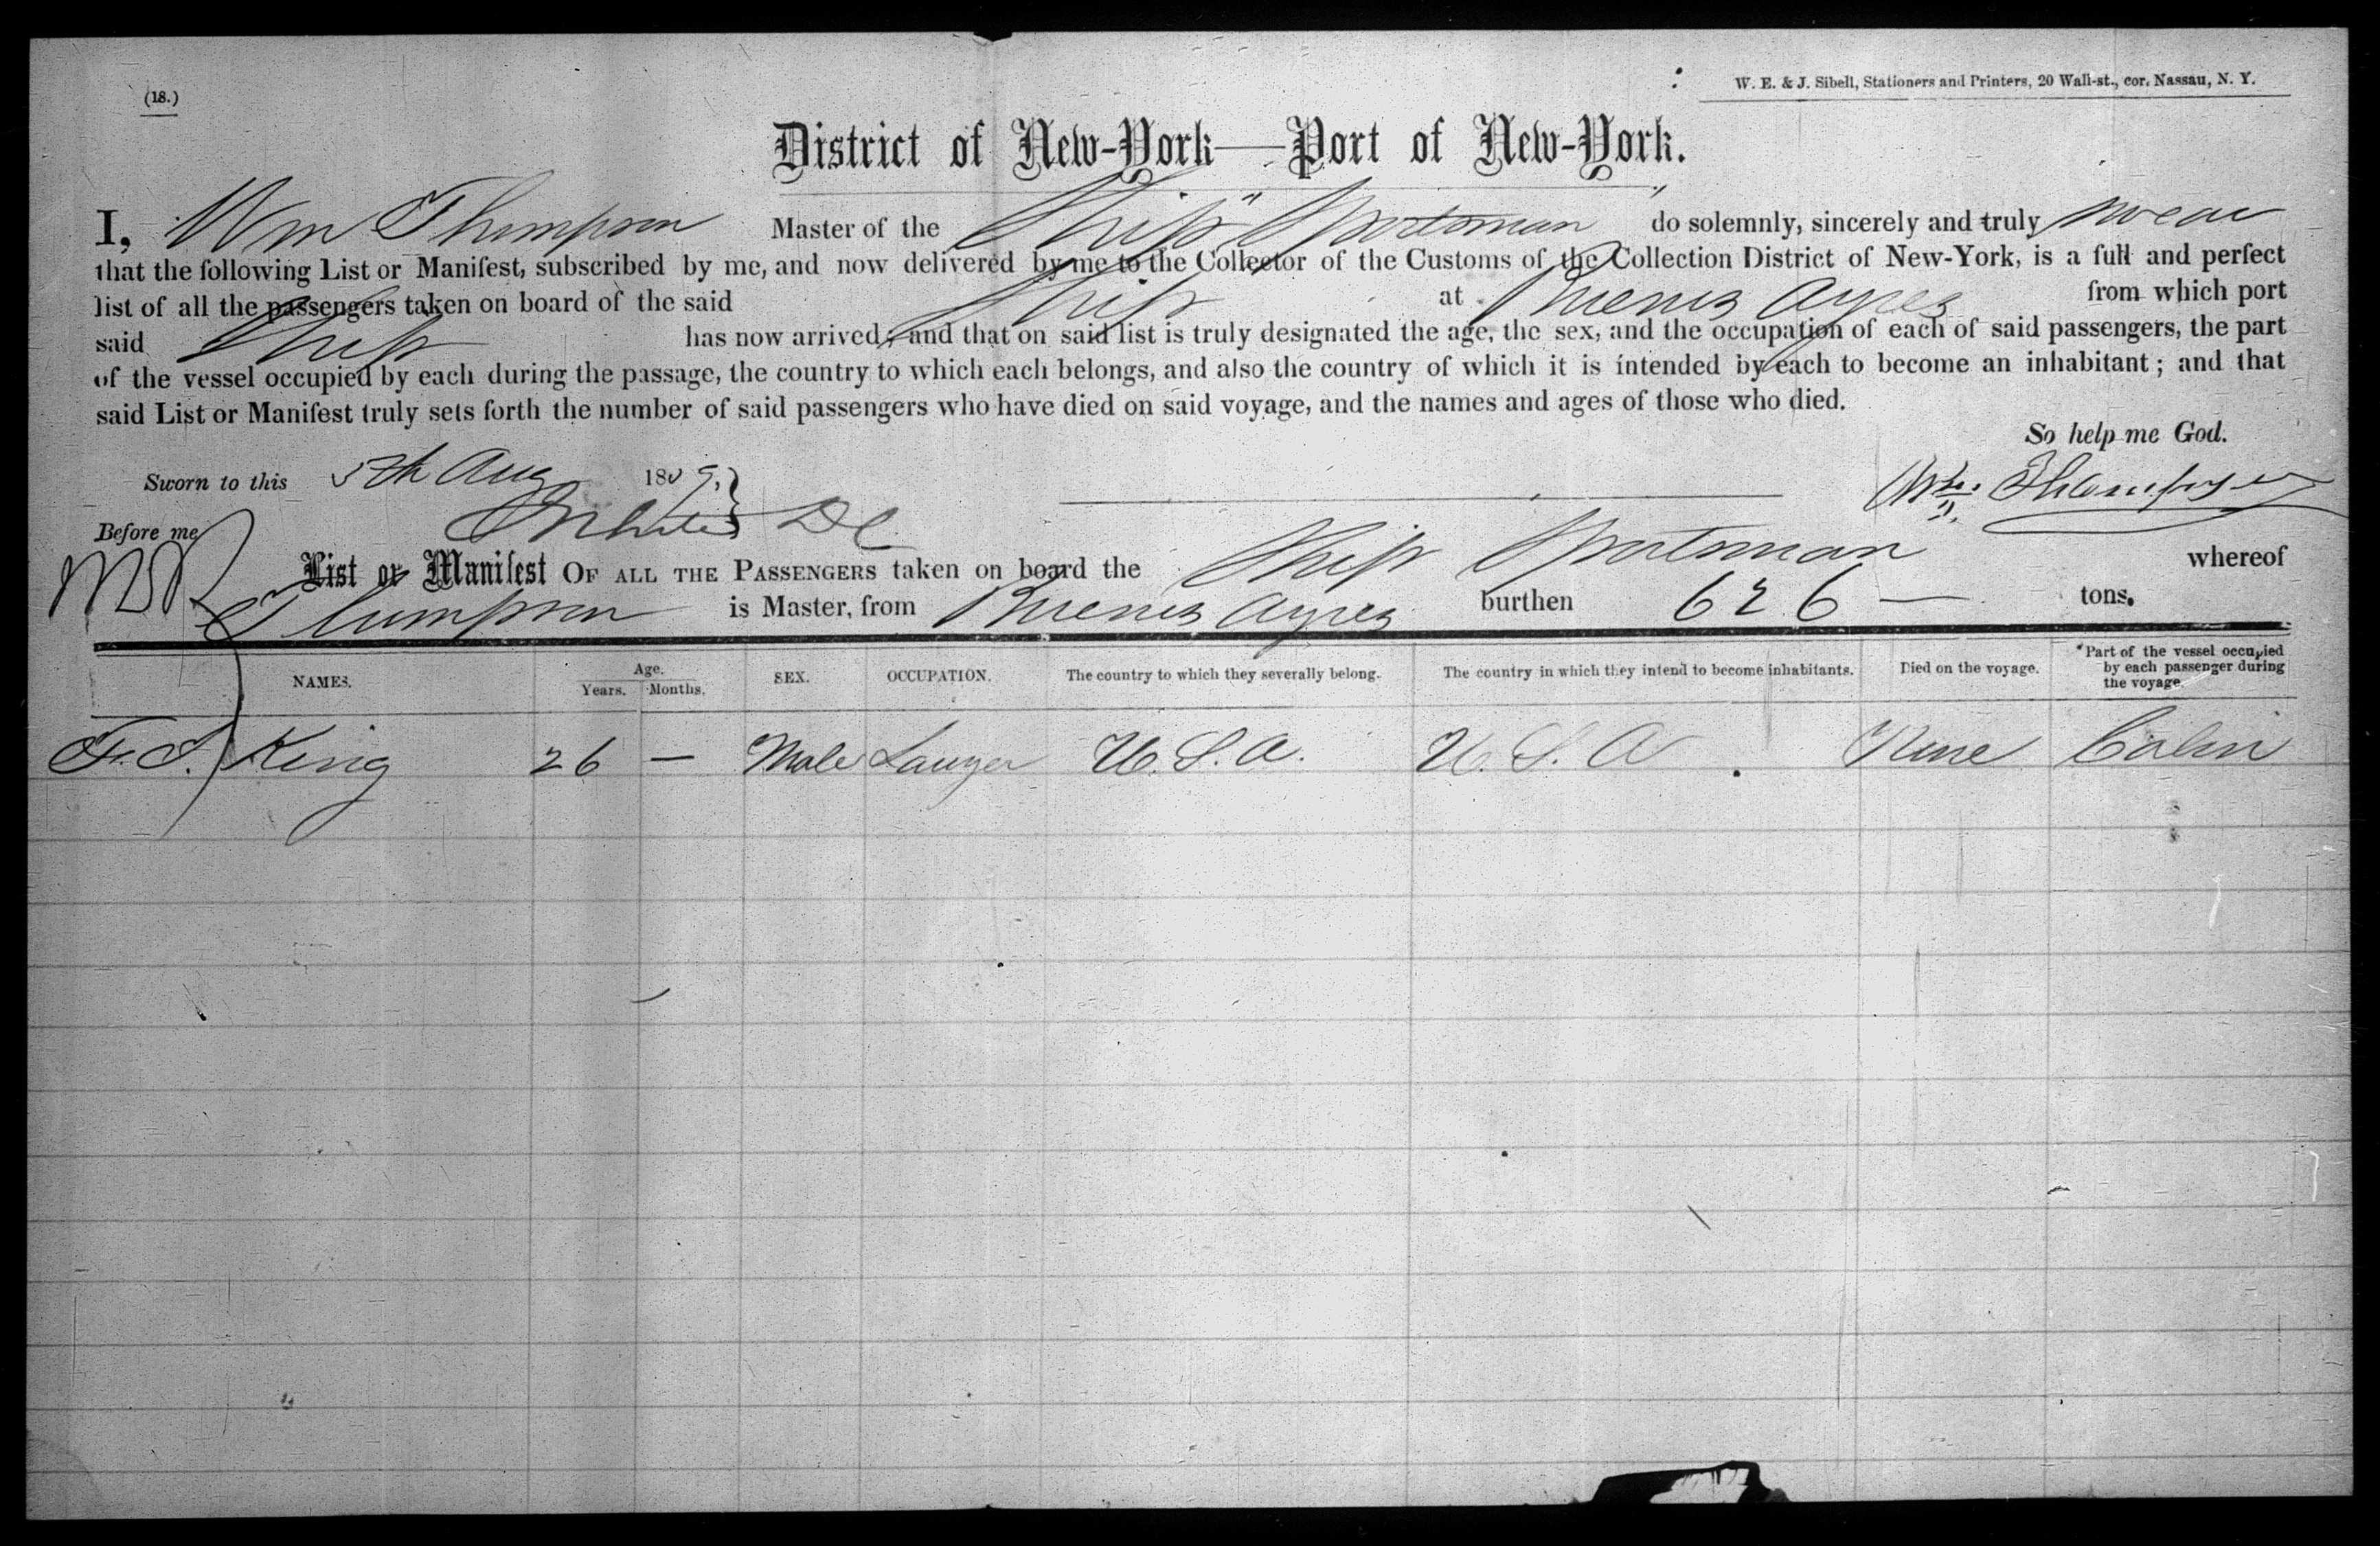 (18.)
W. E. & J. Sibell, Stationers and Printers, 20 Wall-st., cor. Nassau, N. Y.
District of New-York—Port of New-York.
I, Wm Thompson Master of the Ship "Sportsman" do solemnly, sincerely and truly swear
that the following List or Manifest, subscribed by me, and now delivered by me to the Collector of the Customs of the Collection District of New-York, is a full and perfect
list of all the passengers taken on board of the said Ship at Buenos Ayres from which port
said Ship has now arrived; and that on said list is truly designated the age, the sex, and the occupation of each of said passengers, the part
of the vessel occupied by each during the passage, the country to which each belongs, and also the country of which it is intended by each to become an inhabitant; and that
said List or Manifest truly sets forth the number of said passengers who have died on said voyage, and the names and ages of those who died.
So help me God.
Sworn to this 5th Aug 18 9. Wm. Thompson
Before me
List or Manifest OF ALL THE PASSENGERS taken on board the Ship Sportsman whereof
Thompson is Master, from Buenos Ayres burthen 626 — tons.
NAMES. Age. Years. Months. SEX. OCCUPATION. The country to which they severally belong. The country in which they intend to become inhabitants. Died on the voyage. *Part of the vessel occupied by each passenger during the voyage.
King 26 — Male Lawyer U.S.A. U.S.A None Cabin